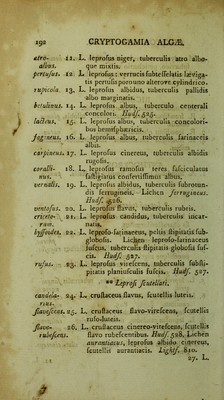 292 CRYPTOGAMIA ALGÆ.
atro- 11. L. leprosus niger, tuberculis atro albo-
albus. que mixtis.
pertusus. 12. L. leprosus: verrucis subtesselatis lævigatis
pertusis poro uno alterove cylindrico.
rupicola. 13. L. leprosus albidus, tuberculis pallidis
albo marginatis.
betulinus. 14. L. leprosus albus, tuberculo centrali
concolori. Huds. 525.
lacteus. 15. L. leprosus albus, tuberculis concoloribus
hemisphæricis.
fagineus. 16. L. leprosus albus, tuberculis farinaceis
albis.
carpineus. 17. L. leprosus cinereus, tuberculis albidis
rugosis.
coralli- 18. L. leprosus ramosus teres fasciculatus
nus. fastigiatus confertissimus albus.
vernalis. 19. L. leprosus albidus, tuberculis subrotundis
ferrugineis. Lichen ferrugineus.
Huds. 526.
ventosus. 20. L. leprosus flavus, tuberculis rubris.
ericeto- 21. L. leprosus candidus, tuberculis incarnatis.
rum.
byssoides. 22. L. leproso-farinaceus, peltis stipitatis subglobosis.
Lichen leproso-farinaceus
fuscus, tuberculis stipitatis globosis fuscis.
Huds. 527.
fuscus. 23. L. leprosus virescens, tuberculis substipitatis
planiusculis fuscis. Huds. 527.
** Leprosi scutellati.
candela- 24. L. crustaceus flavus, scutellis luteis.
rius.
flavescens. 25. L. crustaceus flavo-virescens, scutellis
rufo-luteis.
flavo- 26. L. crustaceus cinereo-virescens, scutellis
rubescens. flavo rubescentibus. Huds. 528. Lichen
aurantiacus, leprosus albido cinereus,
scutellis aurantiacis. Lightf. 810.
27. L.